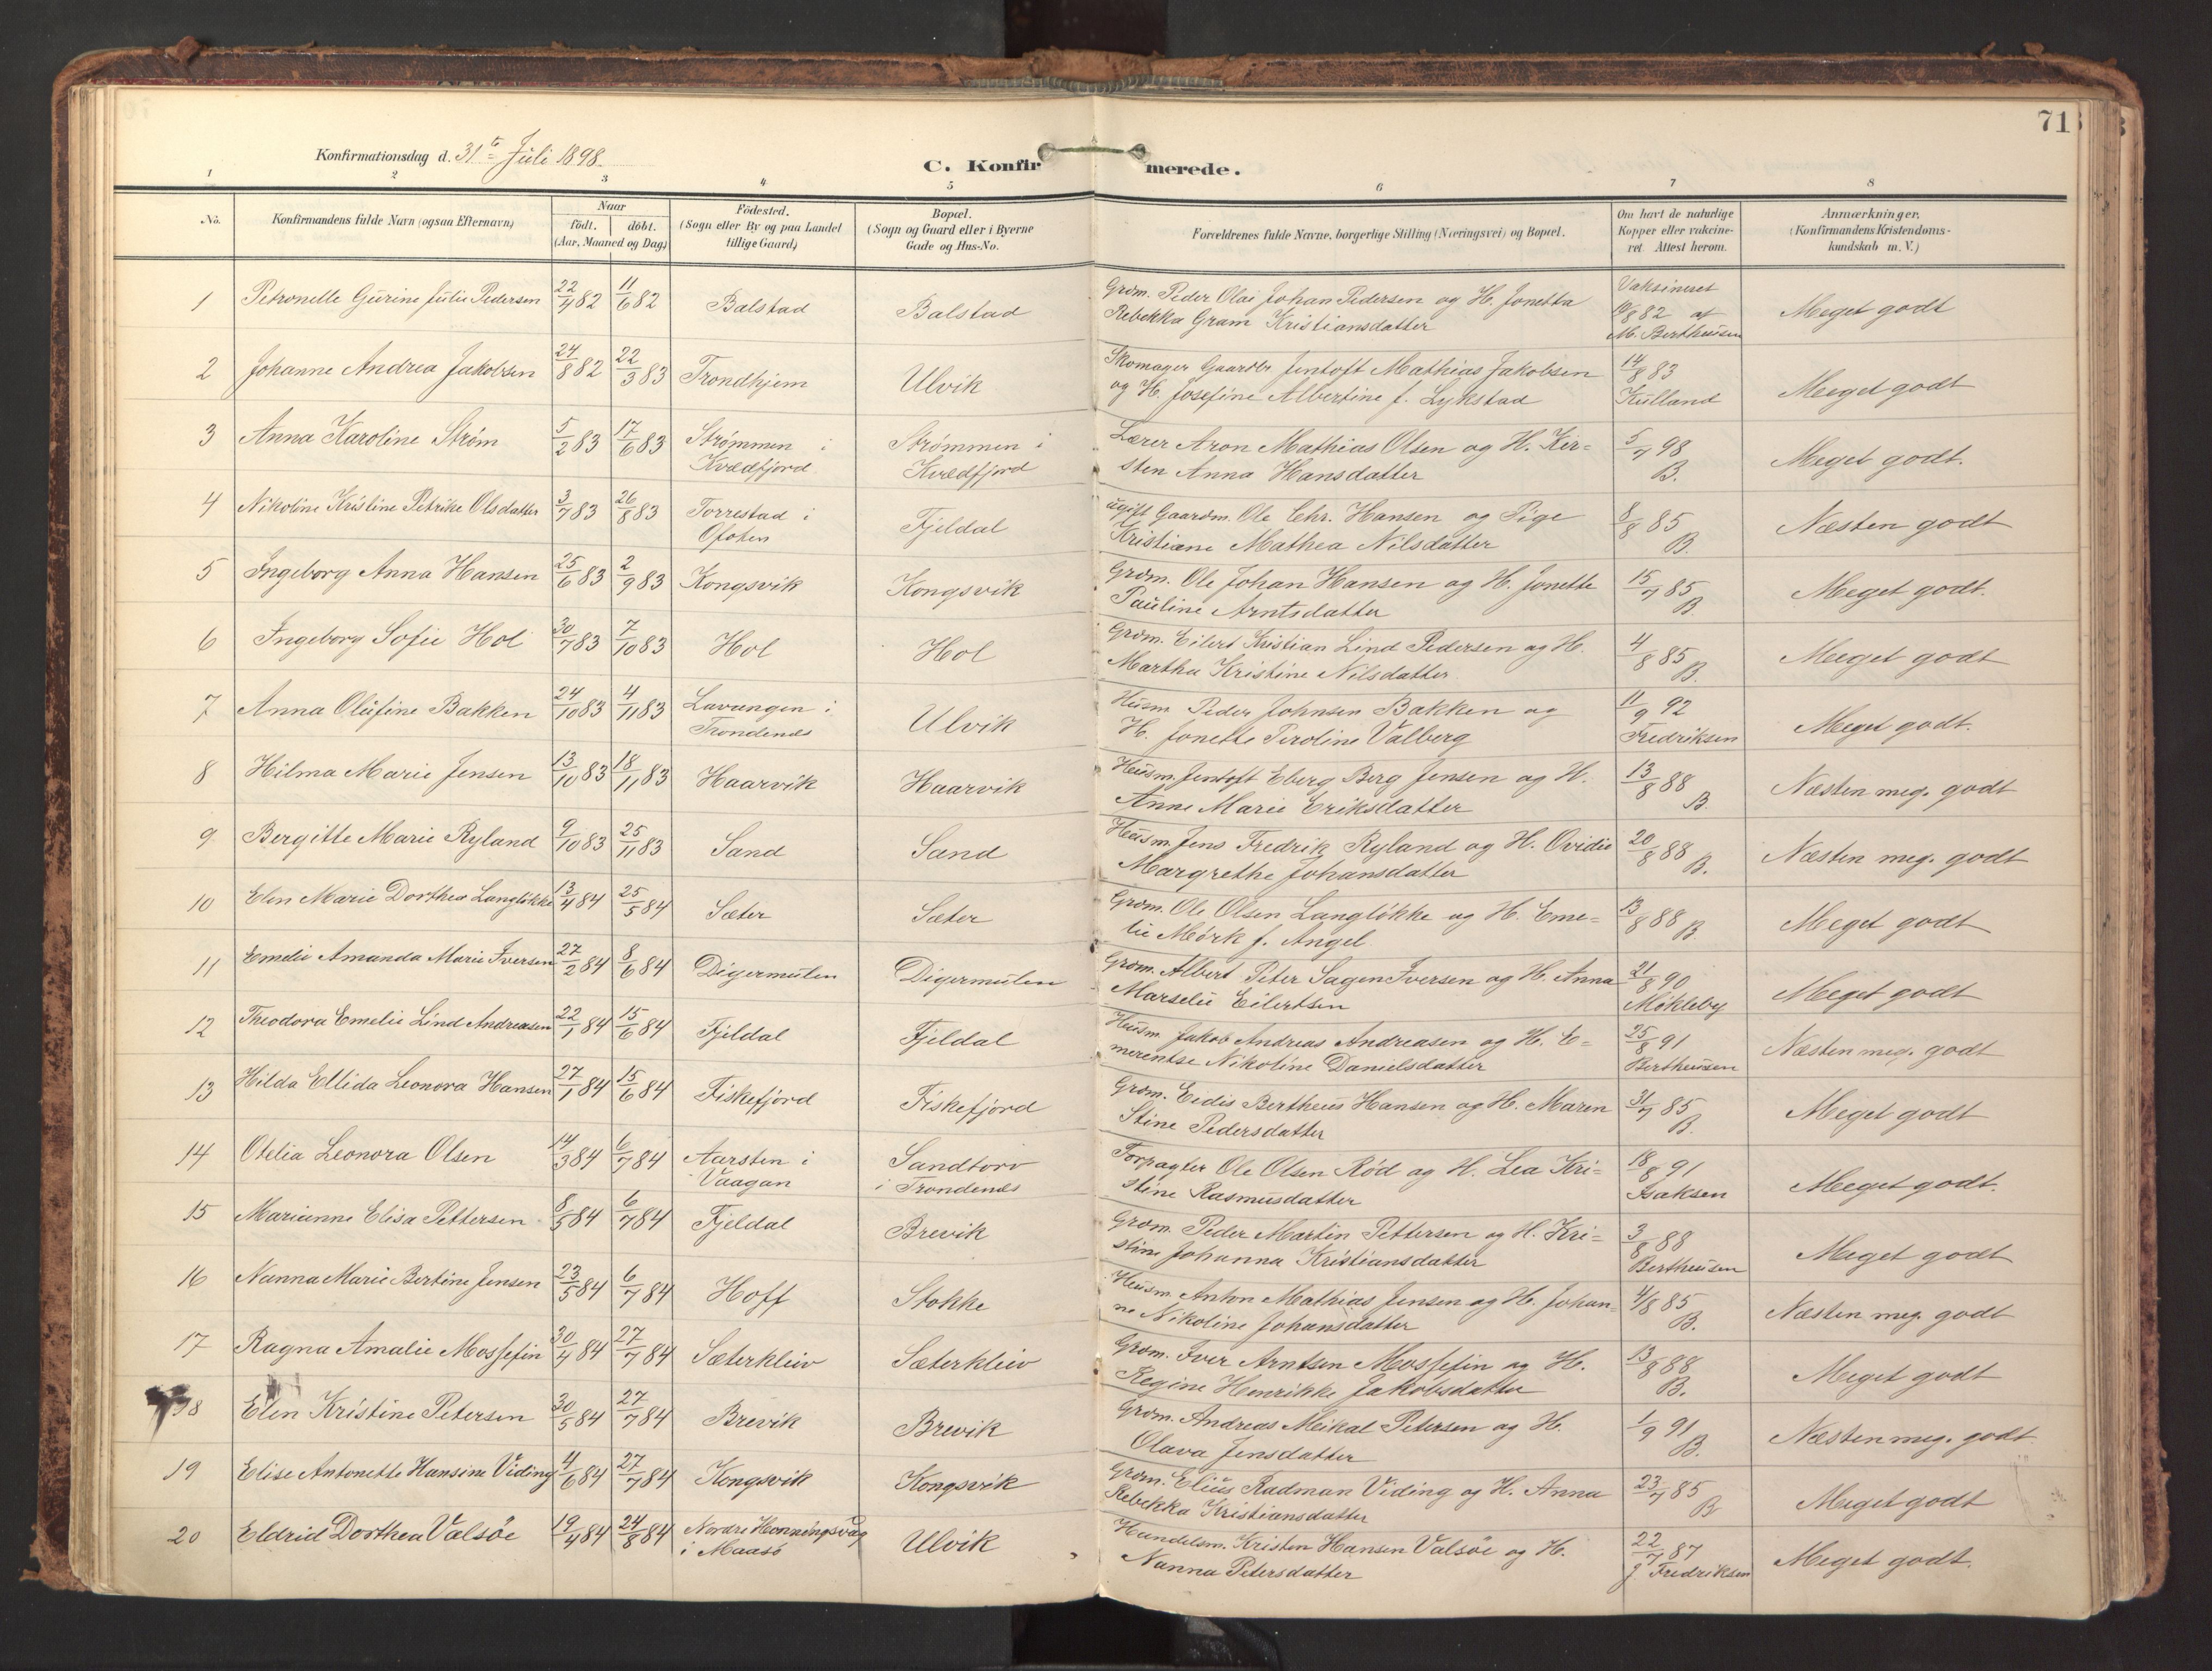 71
Konfirmationsdag d. 31te Juli 1898.
C. Konfirmerede.
1 2 3 4 5 6 7 8
No. Konfirmandens fulde Navn (ogsaa Efternavn) Naar født. døbt. (Aar, Maaned og Dag) Fødested. (Sogn eller By og paa Landet tillige Gaard) Bopæl. (Sogn og Gaard eller i Byerne Gade og Hus-No. Forældrenes fulde Navne, borgerlige Stilling (Næringsvei) og Bopæl. Om havt de naturlige Kopper eller vakcineret. Attest herom. Anmærkninger. (Konfirmandens Kristendomskundskab m. V.)
1 Petronelle Gurine Julie Pedersen 22/4 82 11/6 82 Balstad Balstad Grdm. Peder Olai Johan Pedersen og H. Jonetta Rebekka Gram Kristiansdatter Vaksineret 10/8 82 af M. Bertheusen Meget godt
2 Johanne Andrea Jakobsen 24/8 82 22/3 83 Trondhjem Ulvik Skomager Gaardbr Jentoft Mathias Jakobsen og H. Josefine Albertine f. Lykstad 14/8 83 Kulland Meget godt
3 Anna Karoline Strøm 5/2 83 17/6 83 Strømmen i Kvædfjord Strømmen i Kvædfjord Lærer Aron Mathias Olsen og H. Kirsten Anna Hansdatter 5/7 98 B. Meget godt.
4 Nikoline Kristine Petrike Olsdatter 3/7 83 26/8 83 Torrestad i Ofoten Fjeldal ugift Gaardm. Ole Chr. Hansen og Pige Kristiane Mathea Nilsdatter 8/8 85 B. Næsten godt
5 Ingeborg Anna Hansen 25/6 83 2/9 83 Kongsvik Kongsvik Grdm. Ole Johan Hansen og H. Jonette Pauline Arntsdatter 15/7 85 B Meget godt.
6 Ingeborg Sofie Hol 30/7 83 7/10 83 Hol Hol Grdm. Eilert Kristian Lind Pedersen og H. Martha Kristine Nilsdatter 4/8 85 B. Meget godt
7 Anna Olufine Bakken 24/10 83 4/11 83 Lavangen i Trondenæs Ulvik Husm. Peder Johnsen Bakken og H. Jonette Peroline Valberg 11/9 92 Fredriksen Meget godt.
8 Hilma Marie Jensen 13/10 83 18/11 83 Haarvik Haarvik Husm. Jentoft Eberg Berg Jensen og H. Anne Marie Eriksdatter 13/8 88 B. Næsten meg. godt
9 Bergitte Marie Ryland 9/10 83 25/11 83 Sand Sand Husm. Jens Fredrik Ryland og H. Ovidie Margrethe Johansdatter 20/8 88 B. Næsten meg. godt
10 Elen Marie Dorthea Langløkke 13/4 84 25/5 84 Sæter Sæter Grdm. Ole Olsen Langløkke og H. Emelie Mørk f. Angel 13/8 88 B. Meget godt
11 Emelie Amanda Marie Iversen 27/2 84 8/6 84 Digermulen Digermulen Grdm. Albert Peter Sagen Iversen og H. Anna Marselie Eilertsen 21/8 90 Mökleby Meget godt
12 Theodora Emelie Lind Andreasen 22/1 84 15/6 84 Fjeldal Fjeldal Husm. Jakob Andreas Andreasen og H. Emerentse Nikoline Danielsdatter 25/8 91 Bertheusen Næsten meg. godt
13 Hilda Ellida Leonora Hansen 27/1 84 15/6 84 Fiskefjord Fiskefjord Grdm. Eedis Bertheus Hansen og H. Maren Stine Pedersdatter 31/7 85 B. Meget godt
14 Otelia Leonora Olsen 14/3 84 6/7 84 Aarsten i Vaagan Sandtorv i Trondenæs Forpagter Ole Olsen Rød og H. Lea Kristine Rasmusdatter 18/8 91 Isaksen Meget godt.
15 Marianne Elisa Pettersen 8/5 84 6/7 84 Fjeldal Brevik Grdm. Peder Martin Pettersen og H. Kristine Johanna Kristiansdatter 3/8 88 Bertheusen Meget godt
16 Nanna Marie Bertine Jensen 23/5 84 6/7 84 Hoff Stokke Husm. Anton Mathias Jensen og H. Johanne Nikoline Johansdatter 4/8 85 B. Næsten meg. godt
17 Ragna Amalie Mossefin 30/4 84 27/7 84 Sæterkleiv Sæterkleiv Grdm. Iver Arntsen Mossefin og H. Regine Henrikke Jakobsdatter 13/8 88 B. Meget godt
18 Elen Kristine Petersen 30/5 84 27/7 84 Brevik Brevik Grdm. Andreas Meikal Petersen og H. Olava Jensdatter 1/9 91 B. Næsten meg. godt
19 Elise Antonette Hansine Viding 4/6 84 27/7 84 Kongsvik Kongsvik Grdm. Elius Radman Viding og H. Anna Rebekka Kristiansdatter 23/7 85 B Meget godt
20 Eldrid Dorthea Valsøe 19/4 84 24/8 84 Nordre Honningsvaag i Maasø Ulvik Handelsm. Kristen Hansen Valsøe og H. Nanna Petersdatter 22/7 87 J. Fredriksen Meget godt.